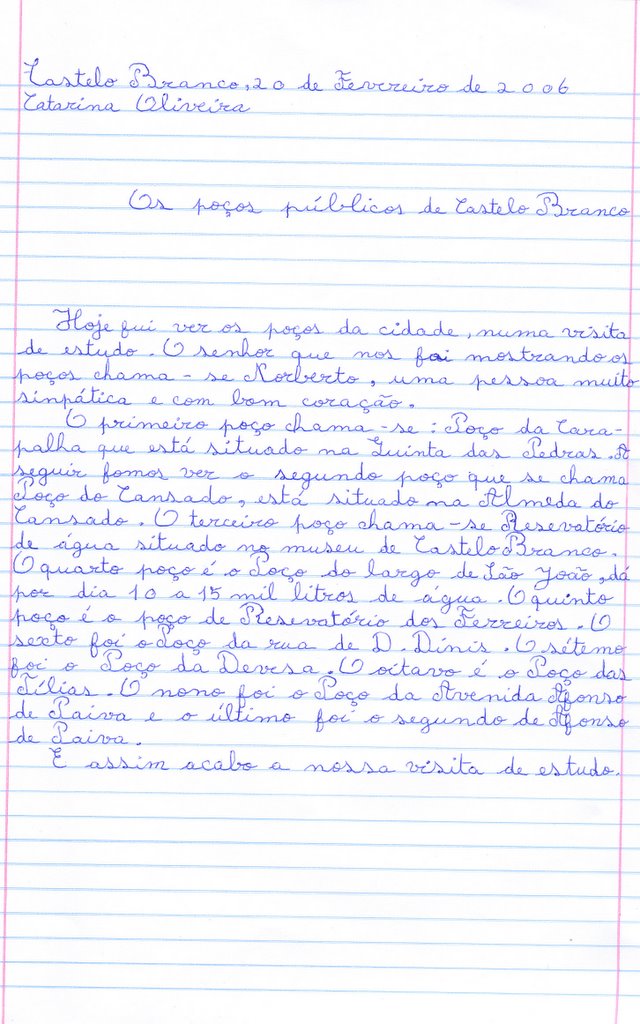 Castelo Branco, 20 de Fevereiro de 2006
Catarina Oliveira
Os poços públicos de Castelo Branco
Hoje fui ver os poços da cidade, numa visita
de estudo. O senhor que nos foi mostrando os
poços chama-se Norberto, uma pessoa muito
sinpática e com bom coração.
O primeiro poço chama-se: Poço da Cara-
palha que está situado na Quinta das Pedras. A
seguir fomos ver o segundo poço que se chama
Poço do Cansado, está situado na Almeda do
Cansado. O terceiro poço chama-se Resevatório
de água situado no museu de Castelo Branco.
O quarto poço é o Poço do largo de São João, dá
por dia 10 a 15 mil litros de água. O quinto
poço é o poço de Resevatório dos Ferreiros. O
sexto foi o Poço da rua de D. Dinis. O sétemo
foi o Poço da Devesa. O oitavo é o Poço das
Tílias. O nono foi o Poço da Avenida Afonso
de Paiva e o último foi o segundo de Afonso
de Paiva.
E assim acabo a nossa visita de estudo.